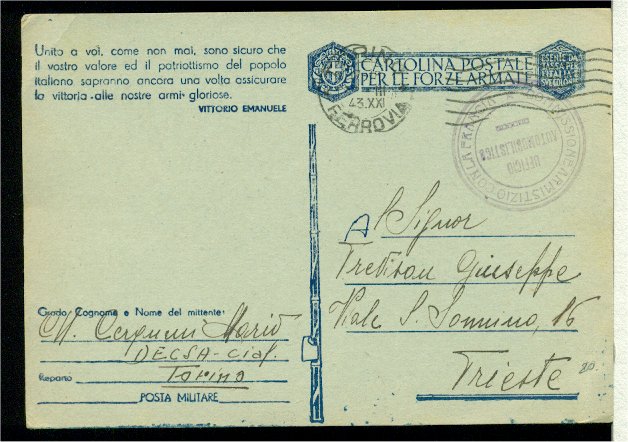 Unito a voi, come non mai, sono sicuro che
il vostro valore ed il patriottismo del popolo
italiano sapranno ancora una volta assicurare
la vittoria alle nostre armi gloriose.
VITTORIO EMANUELE
CARTOLINA POSTALE
PER LE FORZE ARMATE
43.XXI
FERROVIA
COMMISSIONE ARMISTIZIO CON LA FRANCIA
UFFICIO
AUTOMOBILISTICA
Al Signor
Trevisan Giuseppe
Viale S.
16
Trieste
20.
Grado, Cognome e Nome del mittente:
Mario
DECSA-Ciaf.
Reparto Torino
POSTA MILITARE